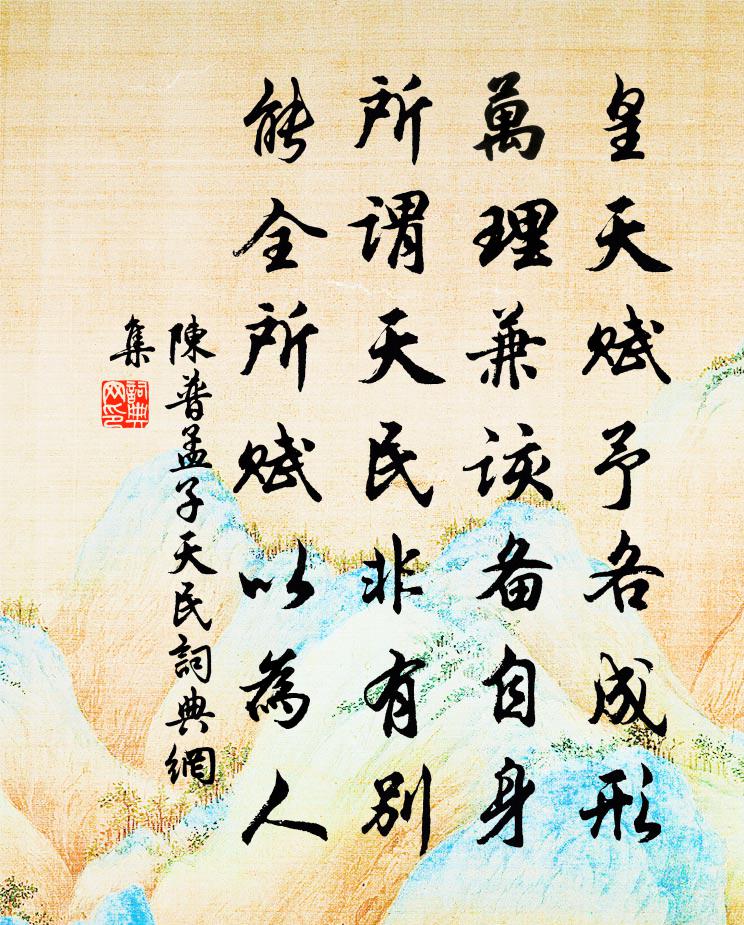 皇天賦予各成形
萬理兼該备自身
所謂天民非有别
能全所賦以為人
陳普孟子天民詞典網
集
詞典
网印